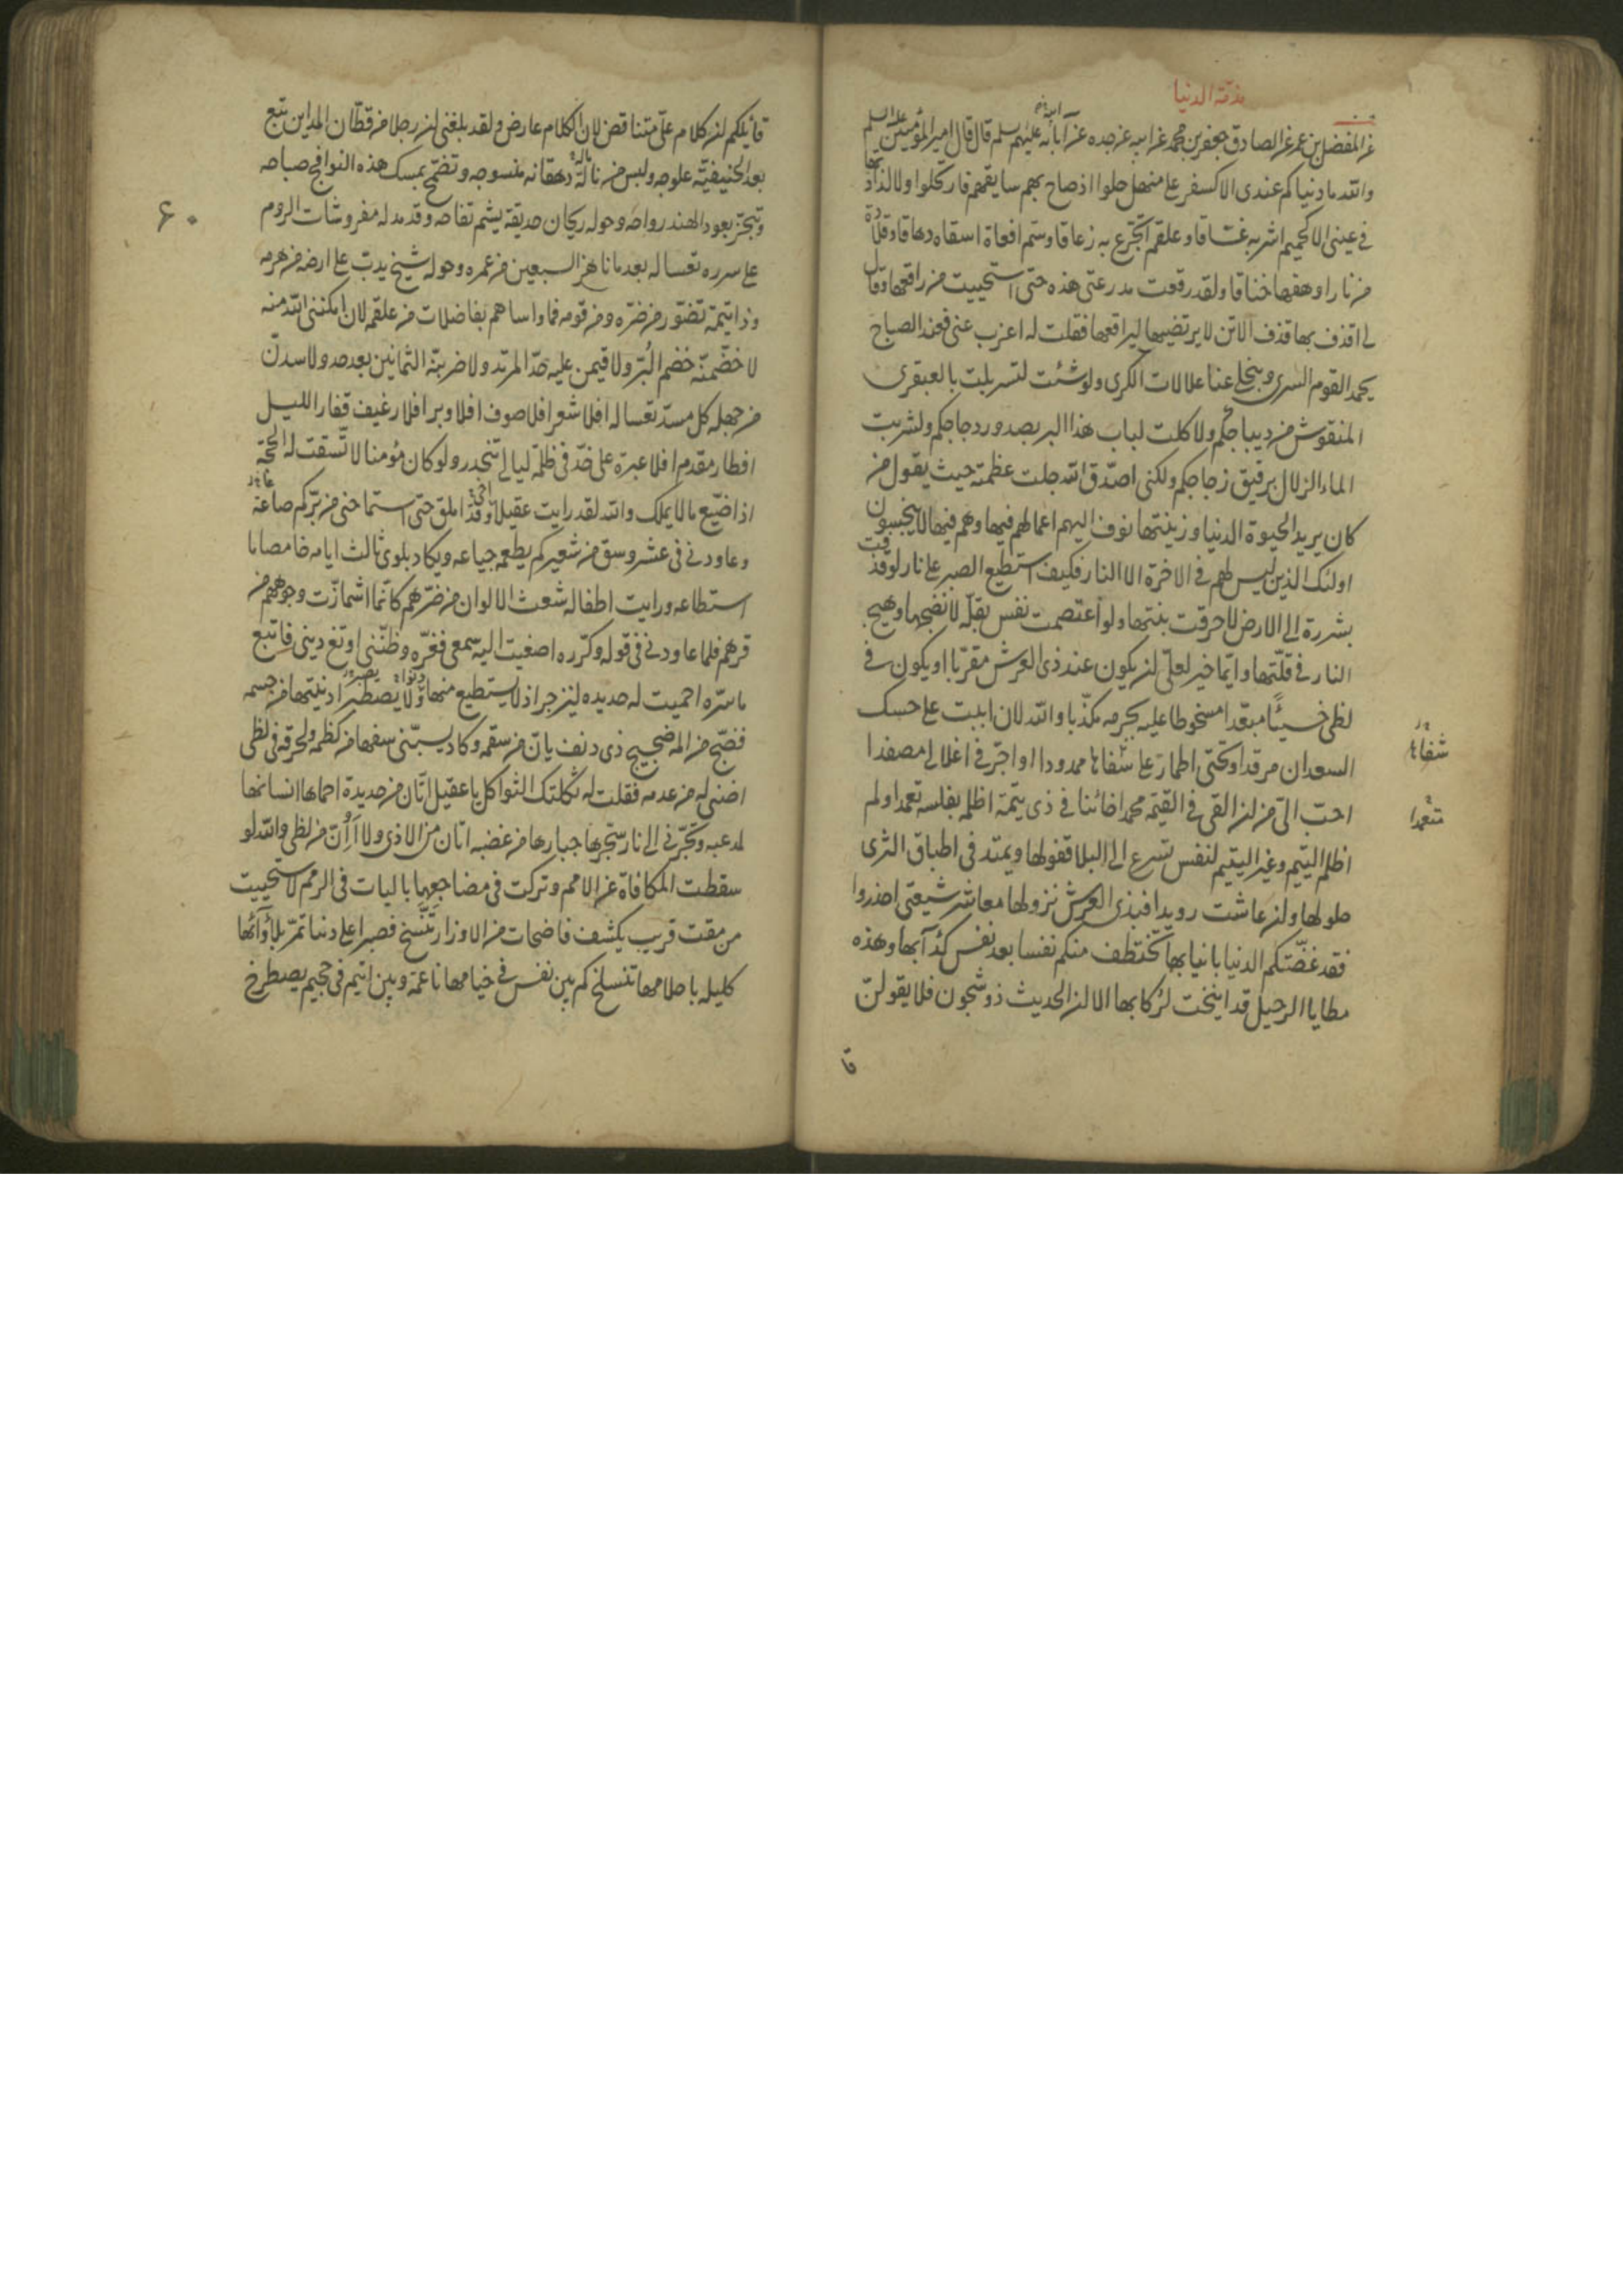 مذمة الدنيا
عن المفضل بن عمر عن الصادق جعفر بن محمد عن ابيه عن جده عن آبائه عليهم سلم قال قال امير المؤمنين عليه السلم
والله ما دنياكم عندى الا كسفر على منهل حلوا اذ صاح بهم سايقهم فارتحلوا ولا لذاذتها
فى عينى الا كحميم اشربه غساقا وعلقم اتجرع به زعاقا وسم افعاة اسقاه دهاقا وقلادة
من نار اوهقها خناقا ولقد رقعت مدرعتى هذه حتى استحييت من راقعها وقال
لى اقذف بها قذف الاتن لا يرتضيها ليراقعها فقلت له اعزب عنى فعند الصباح
يحمد القوم السرى وينجلى عنا علالات الكرى ولو شئت لتسربلت بالعبقرى
المنقوش من ديباجكم ولاكلت لباب هذا البر بصدور دجاجكم ولشربت
الماء الزلال برقيق زجاجكم ولكنى اصدق الله جلت عظمته حيث يقول من
كان يريد الحيوة الدنيا وزينتها نوف اليهم اعمالهم فيها وهم فيها لا يبخسون
اولئك الذين ليس لهم فى الاخرة الا النار فكيف استطيع الصبر على نار لو قذفت
بشررة الى الارض لاحرقت نبتها ولو اعتصمت نفس بقلة لانضجها وهيج
النار فى قلتها وايما خير لعلى ان يكون عند ذى العرش مقربا او يكون فى
لظى خسيئا مبعدا مسخوطا عليه بجرمه مكذبا والله لان ابيت على حسك
السعدان مرقدا وتحتى اطمار على شفاها ممدودا او اجر فى اغلالى مصفدا
احب الى من ان القى فى القيمة محمدا خائنا فى ذى يتمة اظلمه بفلسه تعمدا ولم
اظلم اليتيم وغير اليتيم لنفس تسرع الى البلا قفولها ويمتد فى اطباق الثرى
حلولها وان عاشت رويدا فبذى العرش نزولها معاشر شيعتى احذروا
فقد عضتكم الدنيا بانيابها تختطف منكم نفسا بعد نفس كذآبها وهذه
مطايا الرحيل قد انيخت لركابها الا ان الحديث ذو شجون فلا يقولن
شفاها
متعمدا
قا
قائلكم ان كلام على متناقض لان الكلام عارض ولقد بلغنى ان رجلا من قطان المداين تبع
بعد الحنيفية علوجه ولبس من نالة دهقانه منسوجه وتضمخ بمسك هذه النوافج صباحه
وتبخر بعود الهند رواحه وحوله ريحان حديقة يشم تفاحه وقد مد له مفروشات الروم
على سرره تعسا له بعد ما ناهز السبعين من عمره وحوله شيخ يدب على ارضه من هرمه
وذا يتمة تضور من ضره ومن قومه فما واساهم بفاضلات من علقمه لان امكننى الله منه
لاخضمنه خضم البر ولاقيمن عليه حد المرتد ولاضربنه الثمانين بعد حد ولاسدن
من جهله كل مسد تعسا له افلا شعر افلا صوف افلا وبر افلا رغيف قفار الليل
افطار مقدم افلا عبرة على خد فى ظلمة ليال تنحدر ولو كان مؤمنا لاتسقت له الحجة
اذا ضيع ما لا يملك والله لقد رايت عقيلا اخى وقد املق حتى استماحنى من بركم صاعة
وعاودنى فى عشر وسق من شعيركم يطعمه جياعه ويكاد يلوى ثالث ايامه خامصا ما
استطاعه ورايت اطفاله شعث الالوان من ضرهم كانما اشمازت وجوههم من
قرهم فلما عاودنى فى قوله وكرره اصغيت اليه سمعى فغره وظننى اوتغ دينى فاتبع
ما سره احميت له حديده لينزجر اذ لا يستطيع منها دنوا ولا يصطبر ادنيتها من جسمه
فضج من المه ضجيج ذى دنف يان من سقمه وكاد يسبنى سفها من كظمه ولحرقه فى لظى
اضنى له من عدمه فقلت له ثكلتك الثواكل يا عقيل اتان من حديدة احماها انسانها
لمدعبه وتجرنى الى نار سجرها جبارها من غضبه اتان من الاذى ولا اان من لظى والله لو
سقطت المكافاة عن الامم وتركت فى مضاجعها باليات فى الرمم لاستحييت
من مقت قريب يكشف فاضحات من الاوزار تنسخ فصبرا على دنيا تمر بلأوآئها
كليلة باحلامها تنسلخ كم بين نفس فى خيامها ناعمة وبين اثيم فى جحيم يصطرخ
۶۰